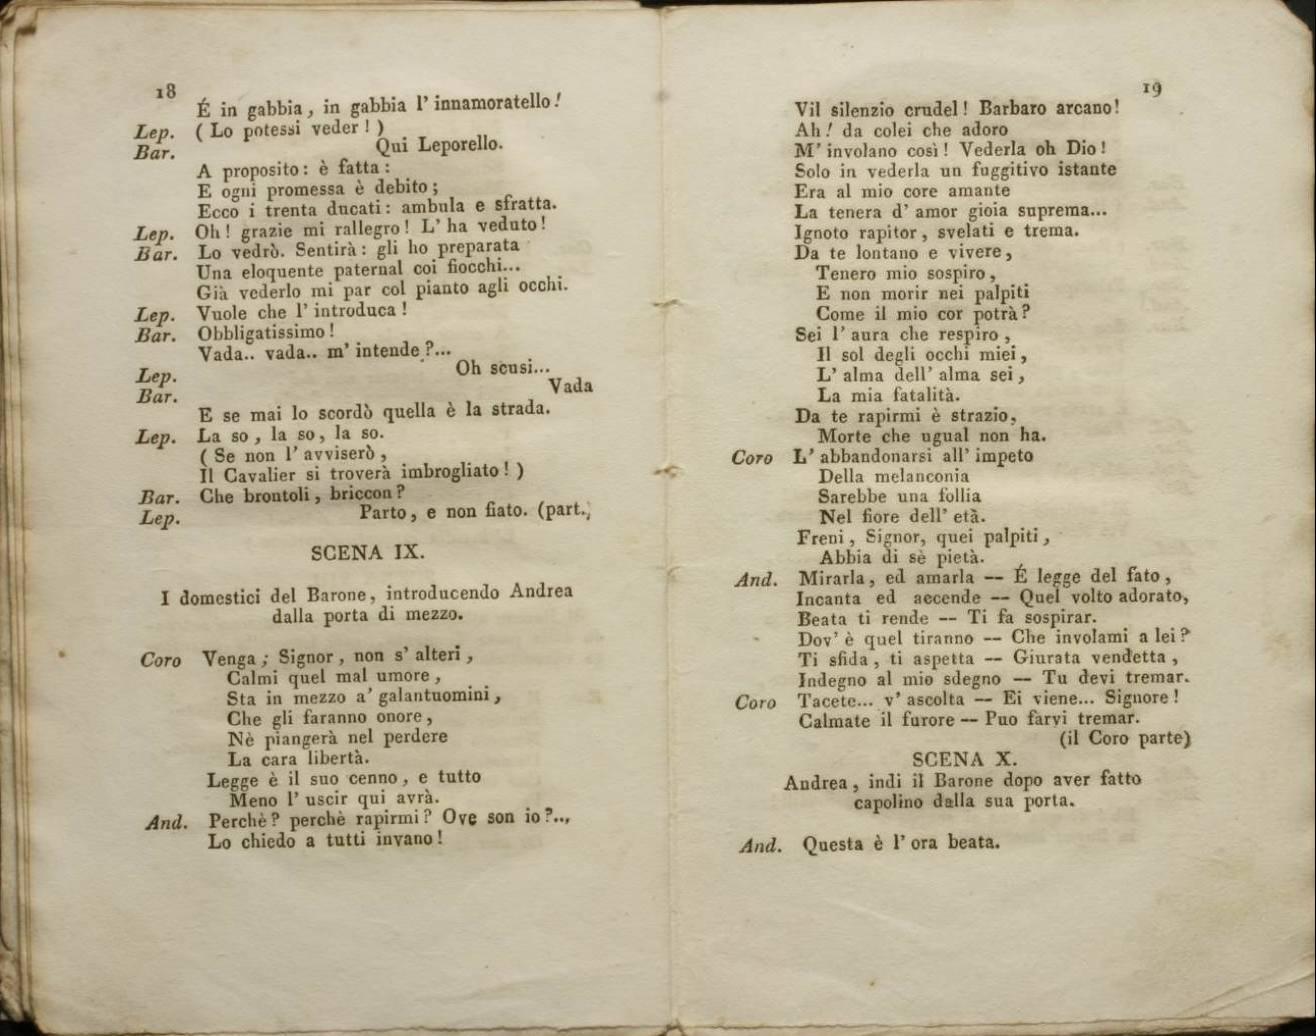 18
É in gabbia, in gabbia l' innamoratello!
Lep. ( Lo potessi veder ! )
Bar. Qui Leporello.
A proposito: è fatta:
E ogni promessa è debito;
Ecco i trenta ducati: ambula e sfratta.
Lep. Oh! grazie mi rallegro! L' ha veduto!
Bar. Lo vedrò. Sentirà: gli ho preparata
Una eloquente paternal coi fiocchi...
Già vederlo mi par col pianto agli occhi.
Lep. Vuole che l' introduca!
Bar. Obbligatissimo!
Vada.. vada.. m' intende?...
Lep. Oh scusi...
Bar. Vada
E se mai lo scordò quella è la strada.
Lep. La so, la so, la so.
( Se non l' avviserò,
Il Cavalier si troverà imbrogliato! )
Bar. Che brontoli, briccon?
Lep. Parto, e non fiato. (part.)
SCENA IX.
I domestici del Barone, introducendo Andrea
dalla porta di mezzo.
Coro Venga; Signor, non s' alteri,
Calmi quel mal umore,
Sta in mezzo a' galantuomini,
Che gli faranno onore,
Nè piangerà nel perdere
La cara libertà.
Legge è il suo cenno, e tutto
Meno l' uscir qui avrà.
And. Perchè? perchè rapirmi? Ove son io?..,
Lo chiedo a tutti invano!
19
Vil silenzio crudel! Barbaro arcano!
Ah! da colei che adoro
M' involano così! Vederla oh Dio!
Solo in vederla un fuggitivo istante
Era al mio core amante
La tenera d' amor gioia suprema...
Ignoto rapitor, svelati e trema.
Da te lontano e vivere,
Tenero mio sospiro,
E non morir nei palpiti
Come il mio cor potrà?
Sei l' aura che respiro,
Il sol degli occhi miei,
L' alma dell' alma sei,
La mia fatalità.
Da te rapirmi è strazio,
Morte che ugual non ha.
Coro L' abbandonarsi all' impeto
Della melanconia
Sarebbe una follia
Nel fiore dell' età.
Freni, Signor, quei palpiti,
Abbia di sè pietà.
And. Mirarla, ed amarla — É legge del fato,
Incanta ed accende — Quel volto adorato,
Beata ti rende — Ti fa sospirar.
Dov' è quel tiranno — Che involami a lei?
Ti sfida, ti aspetta — Giurata vendetta,
Indegno al mio sdegno — Tu devi tremar.
Coro Tacete... v' ascolta — Ei viene... Signore!
Calmate il furore — Puo farvi tremar.
(il Coro parte)
SCENA X.
Andrea, indi il Barone dopo aver fatto
capolino dalla sua porta.
And. Questa è l' ora beata.